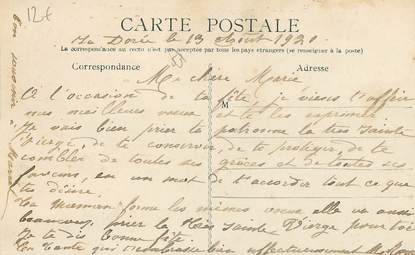 12€
CARTE POSTALE
La Dorée le 13 Août 1920
La correspondance au recto n'est pas acceptée par tous les pays étrangers (se renseigner à la poste)
Correspondance Adresse
Ma chère Marie
A l'occasion de ta fête je viens t'offrir
mes meilleurs vœux et te les exprimer
Je vais bien prier ta patronne la très Sainte
Vierge, de te conserver, de te protéger, de te
combler de toutes ses grâces et de toutes ses
faveurs, en un mot de t'accorder tout ce que
tu désire.
Ta Maman forme les mêmes vœux elle va aussi
beaucoup prier la très Sainte Vierge pour toi
Je te dis bonne fête.
Ta tante qui t'embrasse bien affectueusement
M